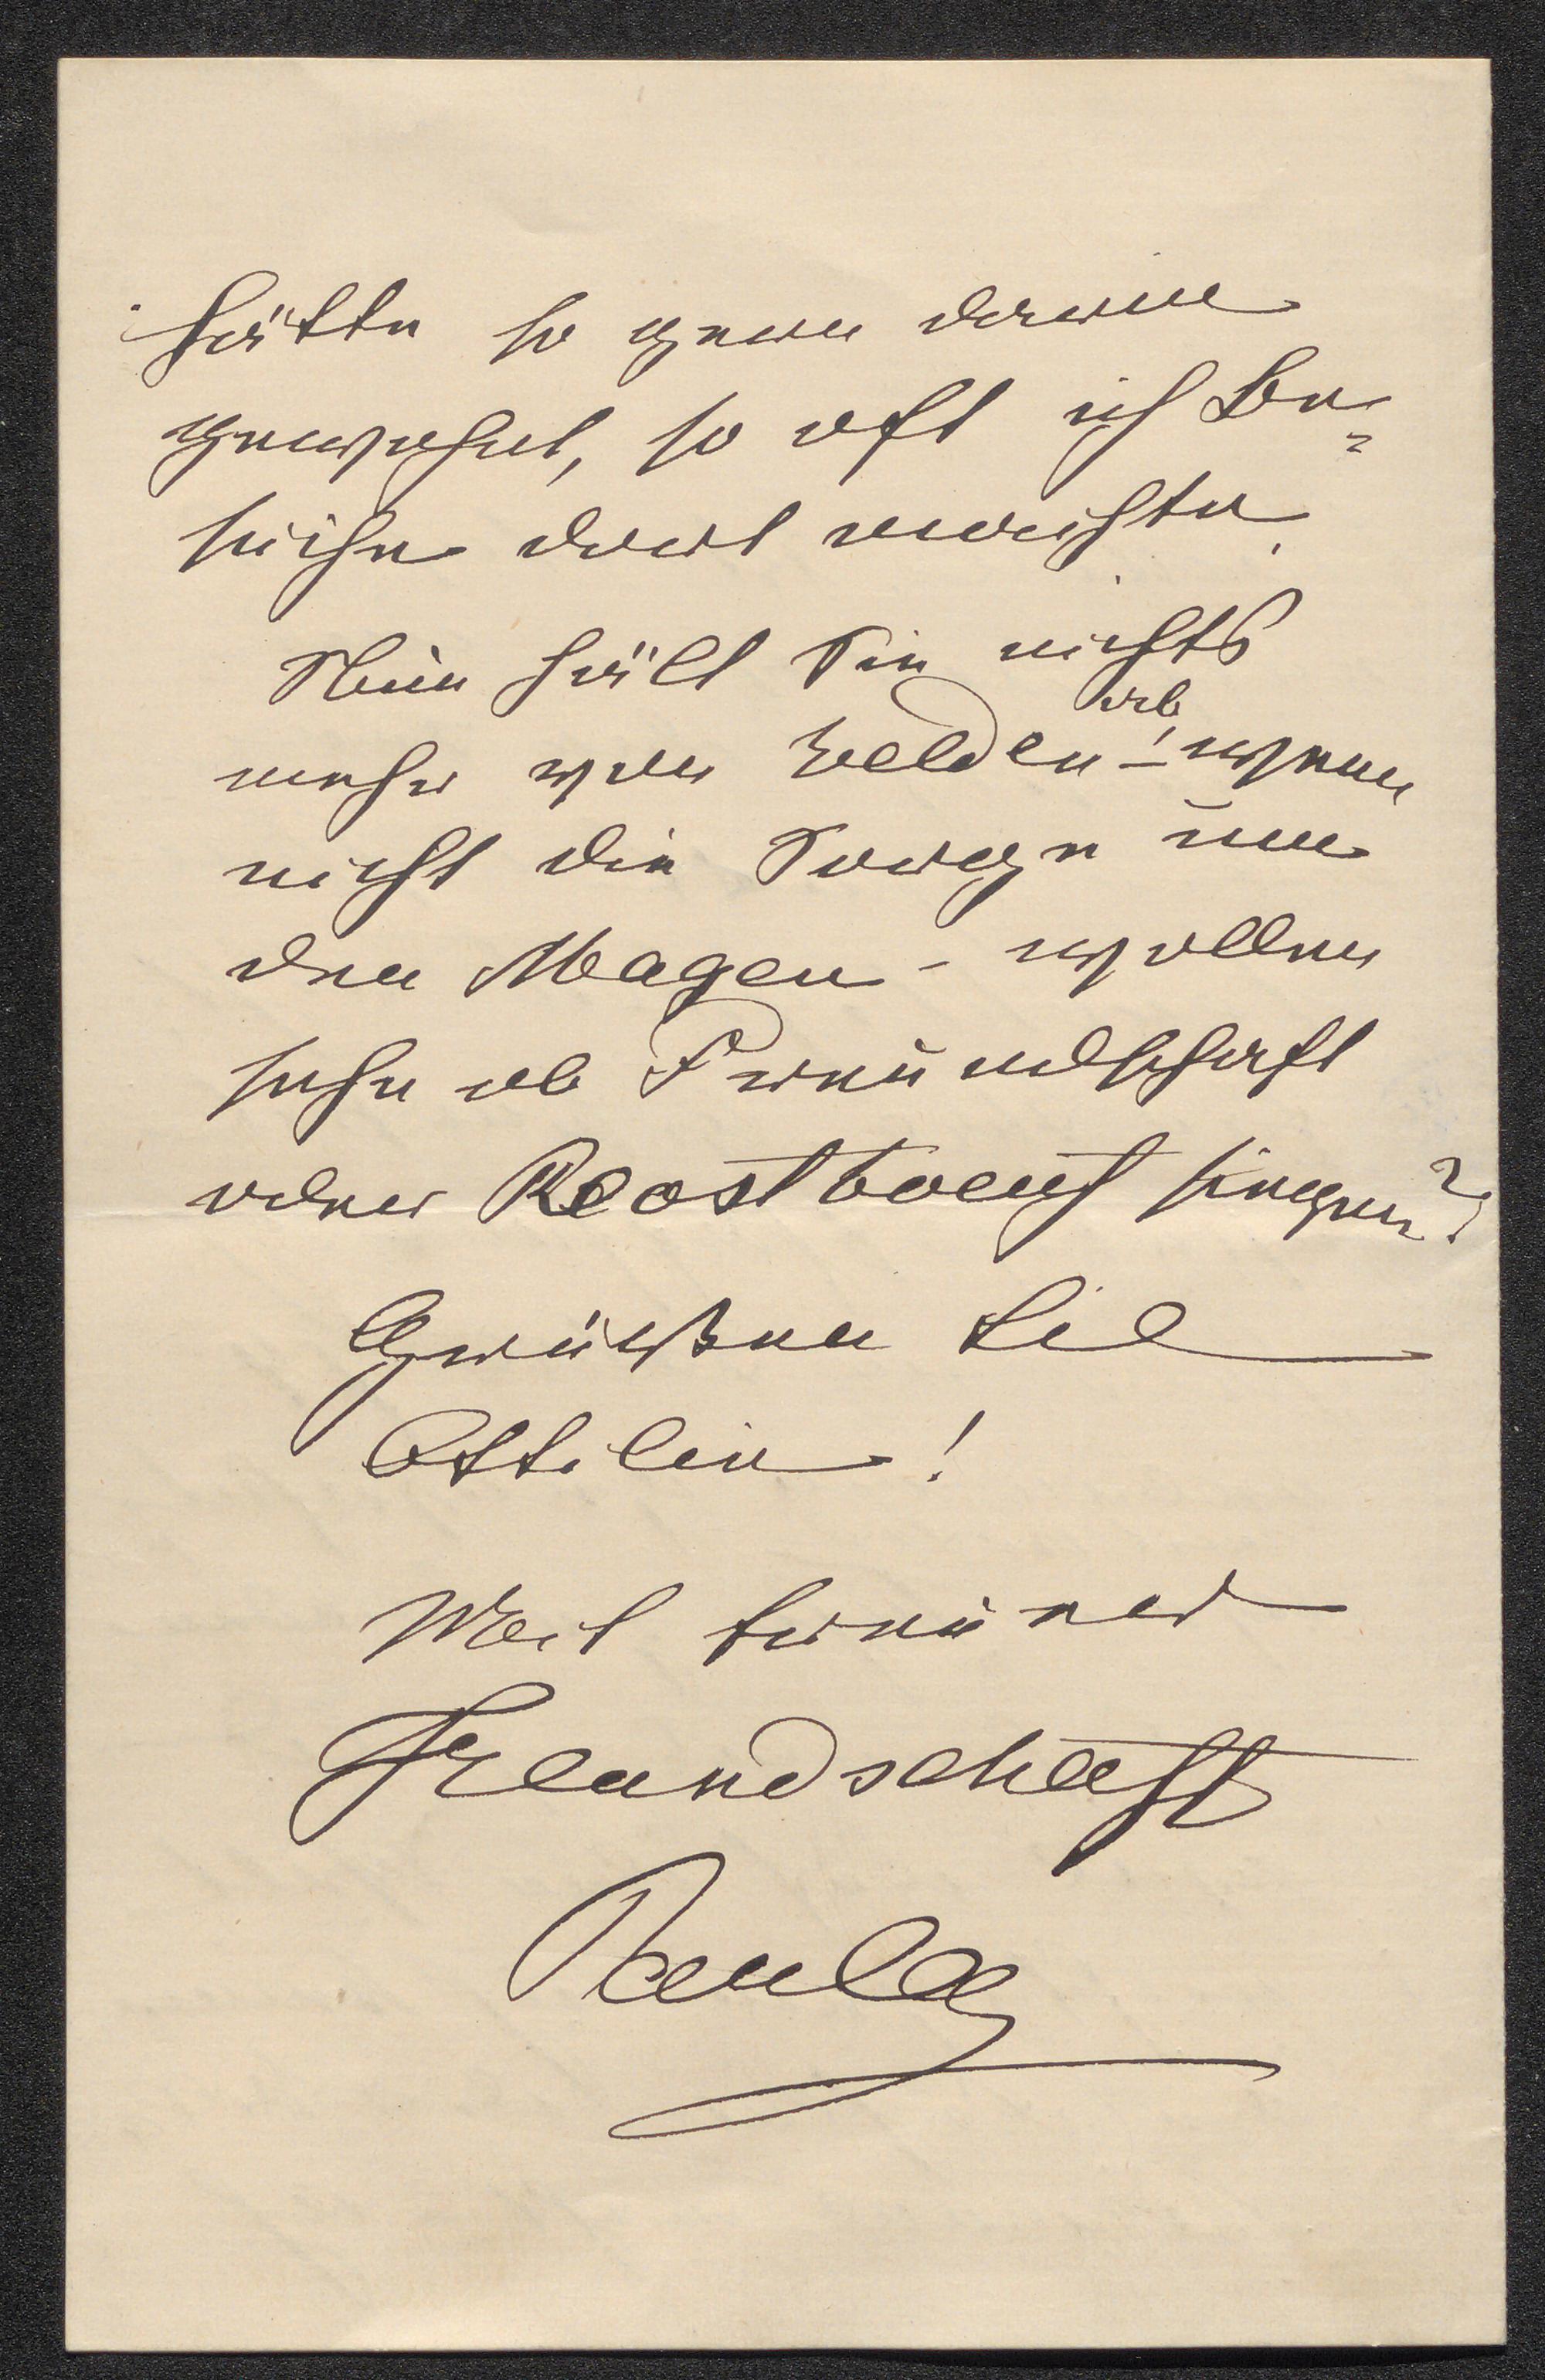 hätte so gern darin
gewohnt, so oft ich Be-
suche dort machte.
Nun hält Sie nichts
mehr von Velden ab! – wenn
nicht die Sorge um
den Magen – wollen
sehn ob Freundschaft
oder Roastboeuf siegen?
Grüßen Sie
Ottilie!
Mit treuer
Freundschaft
Paula